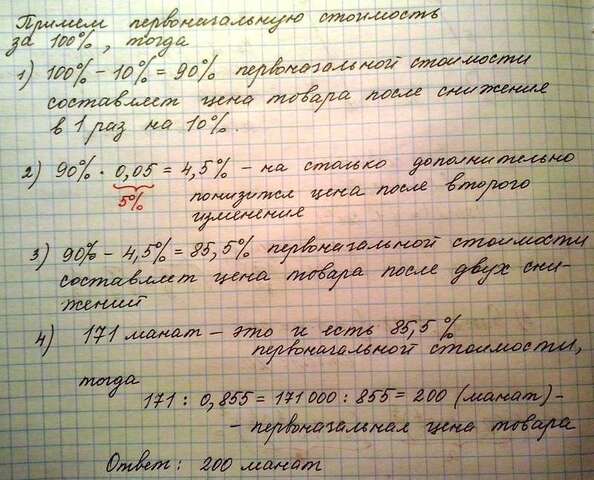 Примем первоначальную стоимость
за 100%, тогда
1) 100% - 10% = 90% первоначальной стоимости
составляет цена товара после снижения
в 1 раз на 10%.
2) 90% · 0,05 = 4,5% - на столько дополнительно
5% понизится цена после второго
изменение
3) 90% - 4,5% = 85,5% первоначальной стоимости
составляет цена товара после двух сни-
жений
4) 171 манат - это и есть 85,5%
первоначальной стоимости,
тогда
171 : 0,855 = 171000 : 855 = 200 (манат) -
- первоначальная цена товара
Ответ: 200 манат